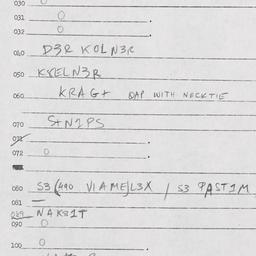 030 O
031 O
032 O
040 D3R KOLN3R
050 KXELN3R
060 KRAGT GAP WITH NECKTIE
070 STNIPS
071
072 O
080 S3(490 VIAMEJL3X / S3 PAST1M
081 —
089 NAKSIT
090 O
100 O